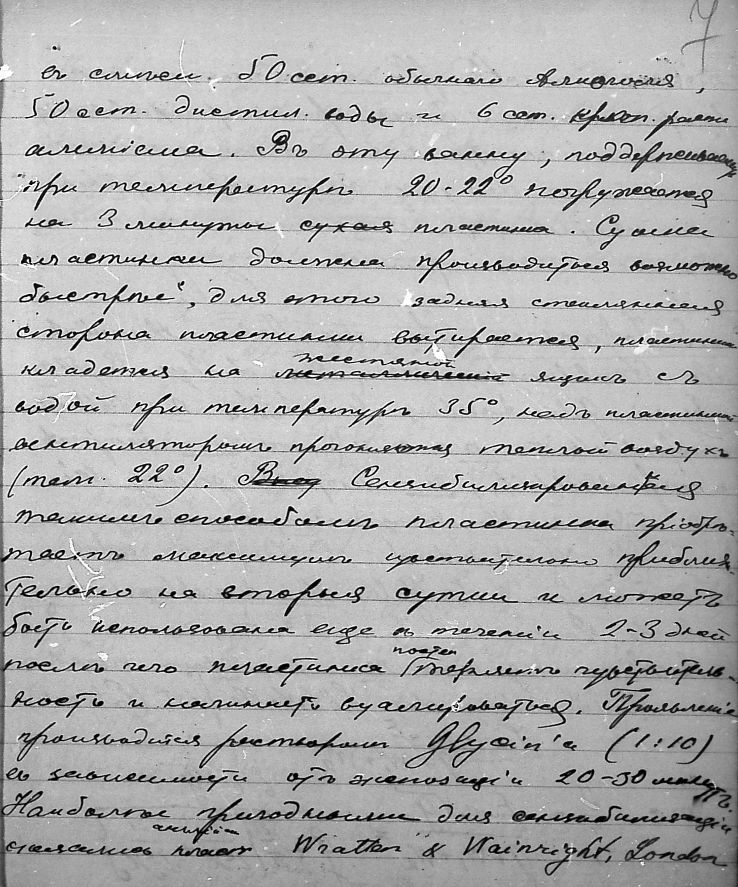 7
съ смѣси 50 сст. обычнаго Алкоголя,
50 сст. дистил. воды и 6 сст. крѣп. раств
амміака. Въ эту ванну, поддерживаемую
при температурѣ 20-22° погружается
на 3 минуты сухая пластинка. Сушка
пластинки должна производиться возможно
быстрѣе, для этого задняя стеклянная
сторона пластинки вытирается, пластинка
кладется на металлическій жестяной ящикъ съ
водой при температурѣ 35°, надъ пластинкой
вентиляторомъ прогоняется теплый воздухъ
(тем. 22°). Сенсибилизированная
такимъ способомъ пластинка пріобрѣ-
таетъ максимумъ чувствительно приблизи-
тельно на вторыя сутки и можетъ
быть использована еще въ теченіи 2-3 дней
послѣ чего пластинка теряетъ чувствитель-
ность и начинаетъ вуалироваться. Проявленіе
производится растворомъ Glycin'a (1:10)
въ зависимости отъ экспозиціи 20-30 минутъ.
Наиболѣе пригодными для сенсибилизаціи
оказались пласт Wratten & Wainright, London